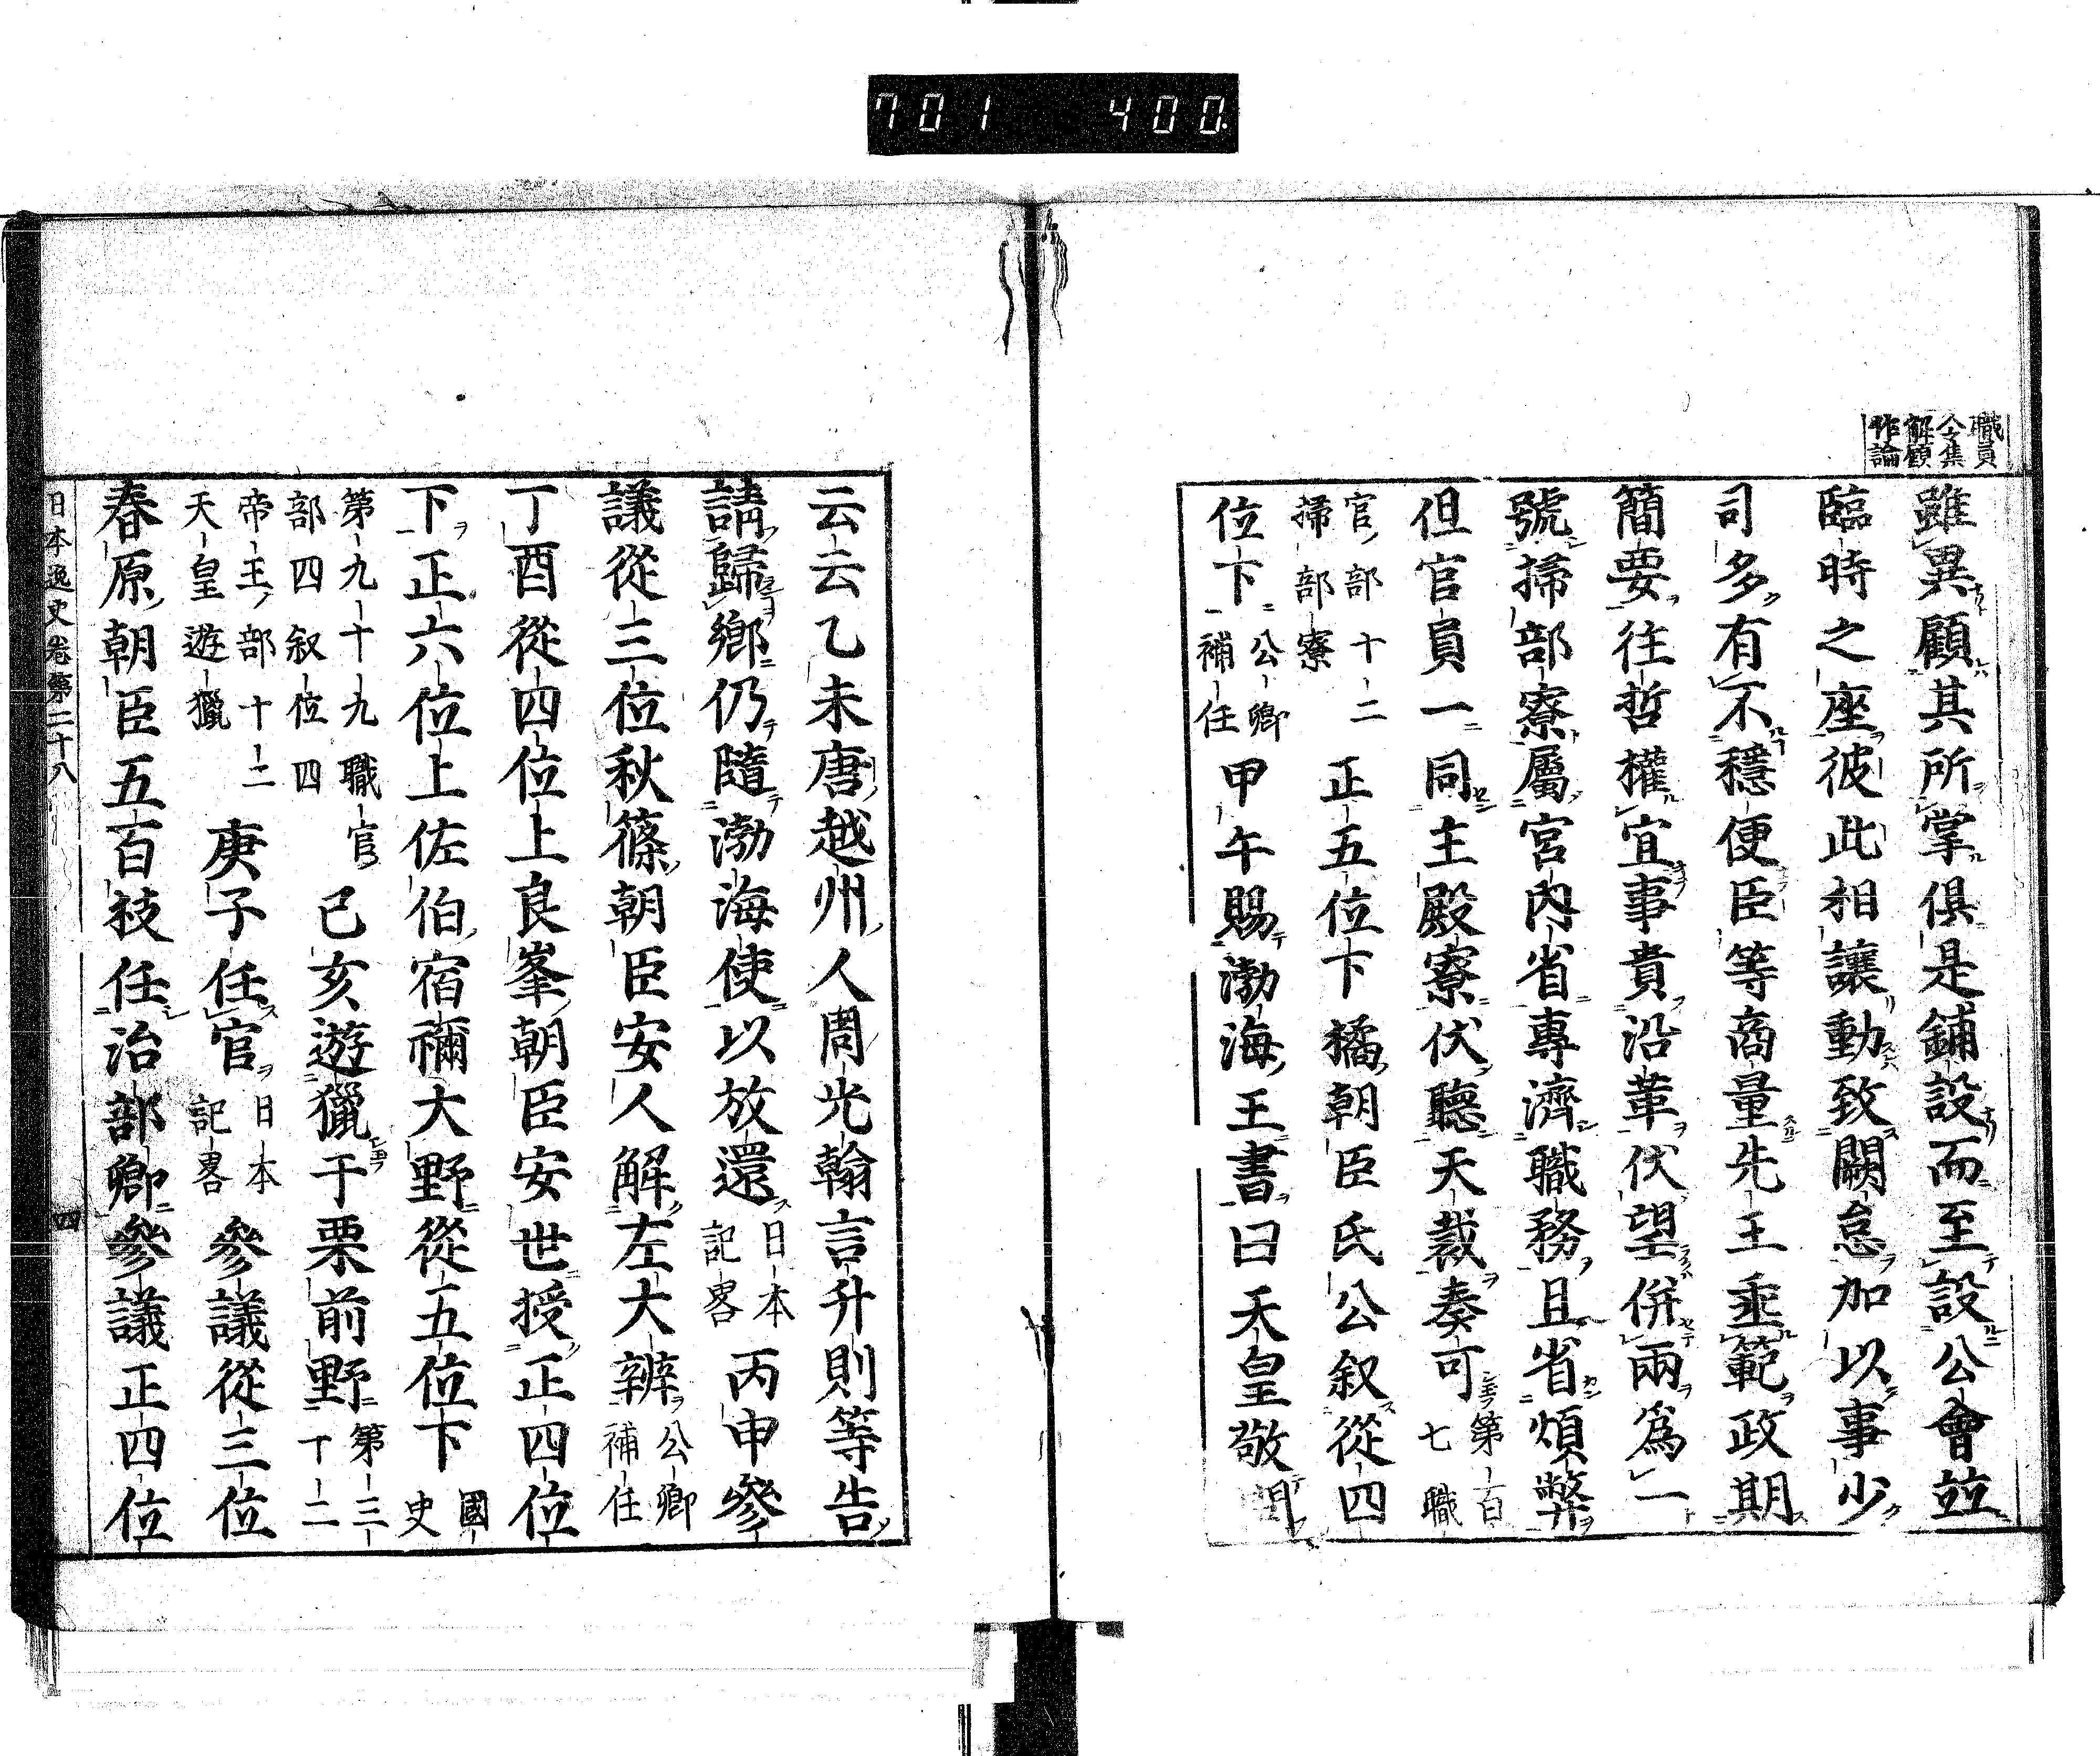 701 400
職員
令集
解顧
作論
雖異顧其所掌俱是鋪設而至設公會並
臨時之座彼此相讓動致闕怠加以事少
司多有不穩便臣等商量先王垂範政期
簡要往哲權宜事貴沿革伏望併兩爲一
號掃部寮屬宮內省專濟職務且省煩弊
但官員一同主殿寮伏聽天裁奏可第一百
七職
官部十二
掃部寮正五位下橘朝臣氏公叙從四
位下公卿
補任甲午賜渤海王書曰天皇敬
云云乙未唐越州人周光翰言升則等告
請歸鄉仍隨渤海使以放還日本
記畧丙申參
議從三位秋篠朝臣安人解左大辨公卿
補任
丁酉從四位上良峯朝臣安世授正四位
下正六位上佐伯宿禰大野從五位下國
史
第九十九職官
部四叙位四己亥遊獵于栗前野第三
丁二
帝王部十二
天皇遊獵庚子任官日本
記畧參議從三位
春原朝臣五百枝任治部卿參議正四位
日本逸史卷第二十八
四